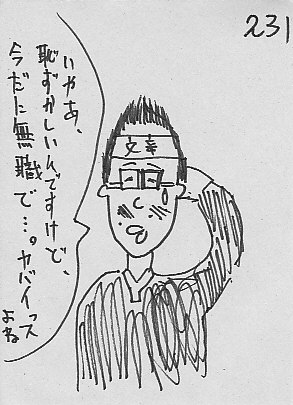 231
いやあ、
恥ずかしいんですけど、
今だに無職で…。ヤバイッス
よね